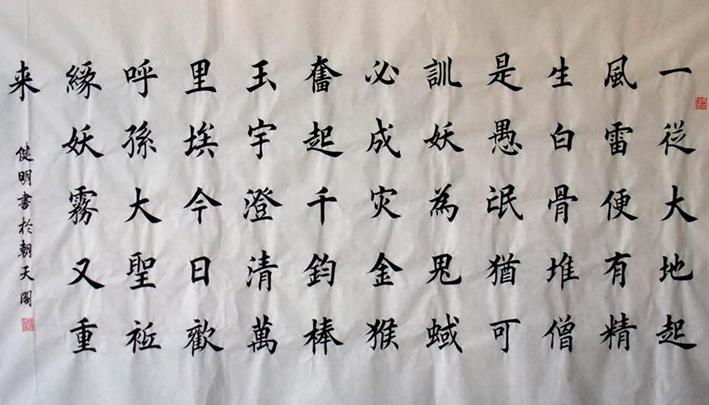 一從大地起
風雷便有精
生白骨堆僧
是愚氓猶可
訓妖為鬼蜮
必成灾金猴
奮起千鈞棒
玉宇澄清萬
里埃今日歡
呼孫大聖祗
緣妖霧又重
来
健明書於朝天閣